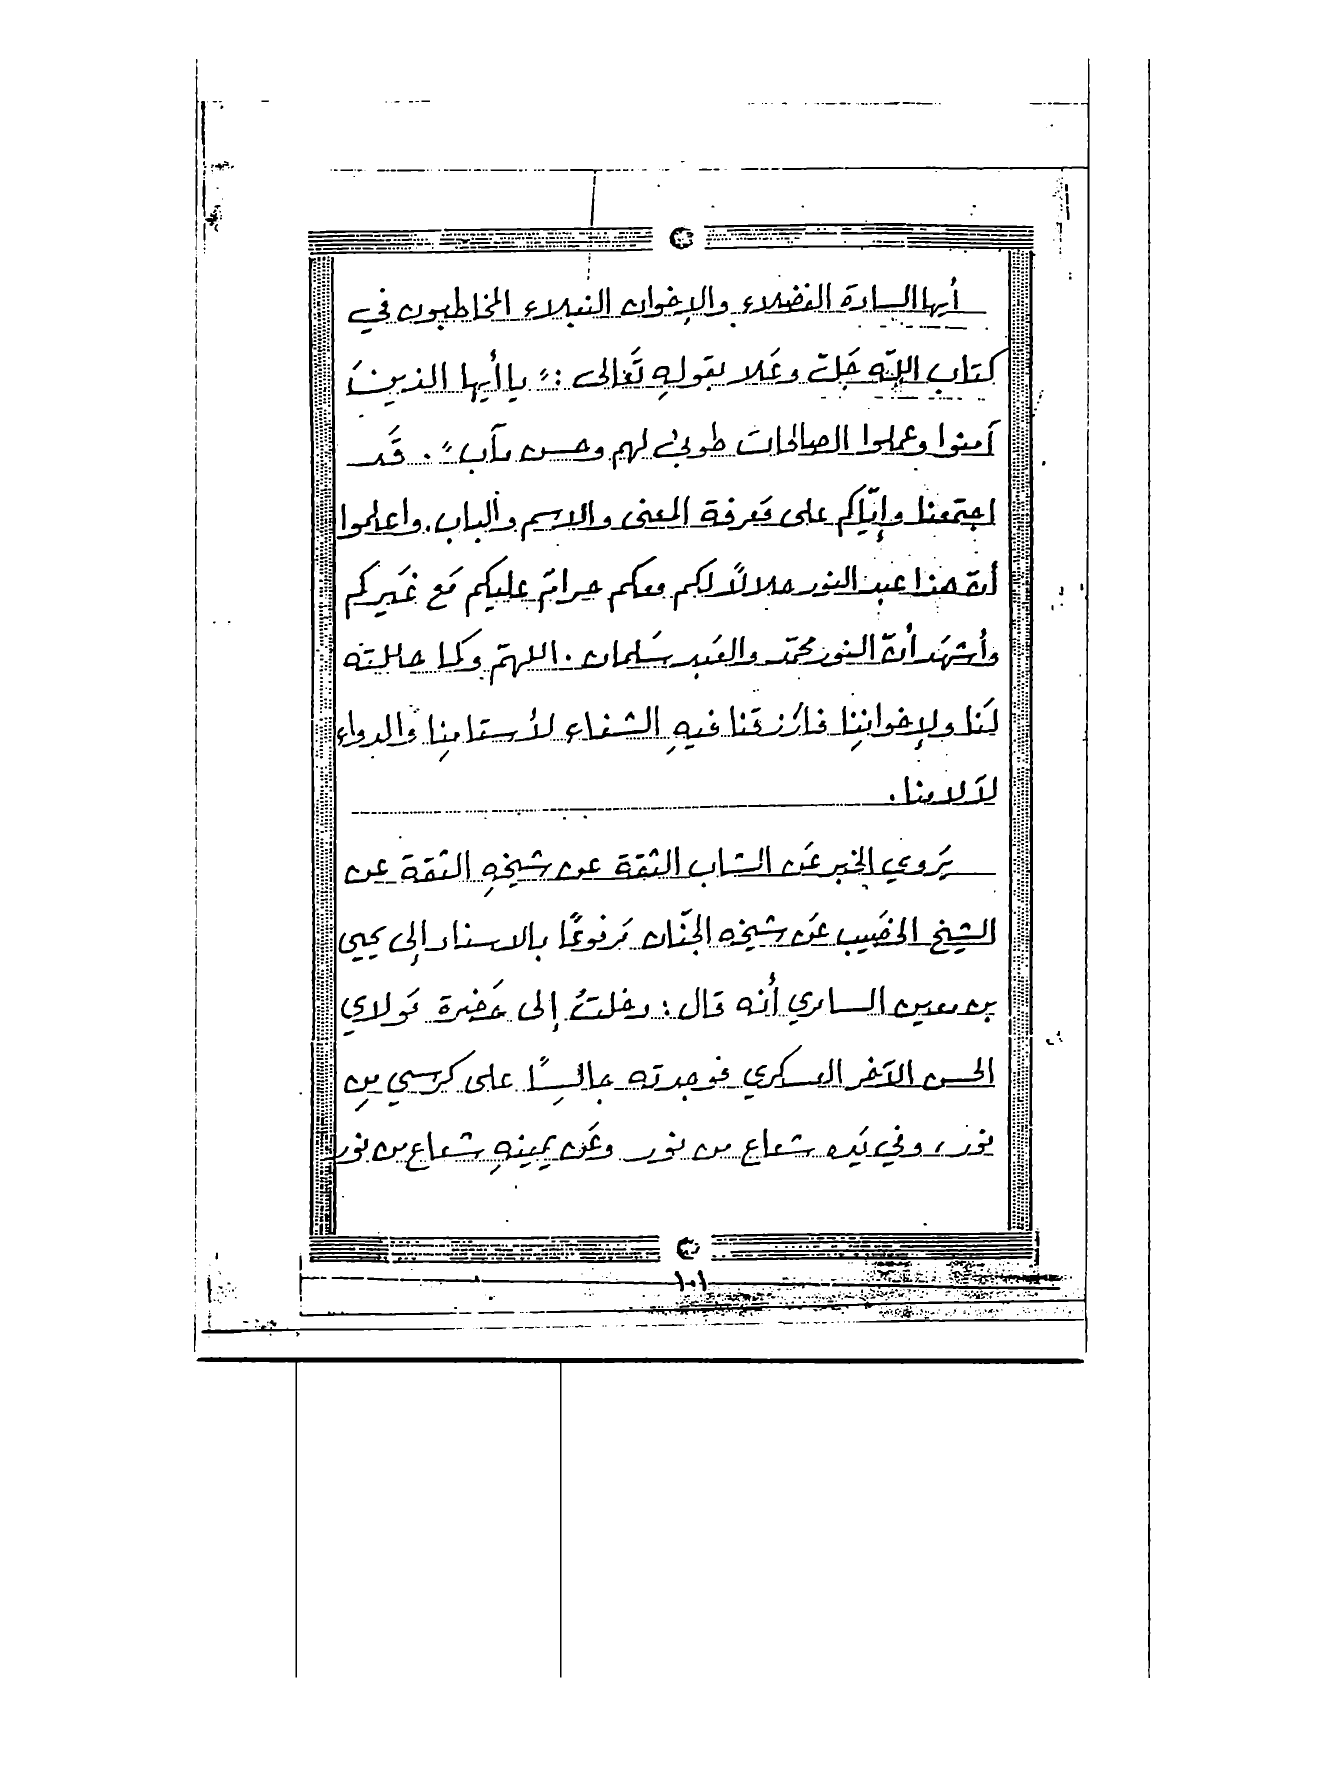 أيها السادة الفضلاء والإخوان النبلاء المخاطبون في
كتاب اللّه جَلّ وعَلا بقولهِ تَعَالى : " يا أيها الذينَ
آمنوا وعملوا الصالحات طوبى لهم وحسن مآب " . قَد
اجتمعنا وإيّاكم على مَعرفة المعنى والاسم والباب . واعلموا
أنّ هذا عبد النور حلالاً لكم معكم حرامٌ عليكم مَع غَيركم
وأشهَد أنّ النور محمّد والعَبد سَلمان . اللهمّ وكما حللته
لَنا ولإخواننِا فارُزقنا فيهِ الشفاء لأسقامِنا والدواء
لآلامنا .
يَروي الخبر عَن الشاب الثقة عن شيخهِ الثقة عن
الشيخ الخصَيب عَن شيخه الجنّان مَرفوعًا بالاسناد إلى يحيى
بن معين السامري أنه قال : دخلتُ إلى حَضرة مَولاي
الحسن الآخر العسكري فوجدته جالسِاً على كرسي مِن
نور ، وفي يَده شعاع من نور وعَن يمينهِ شعاع من نور
١٠١